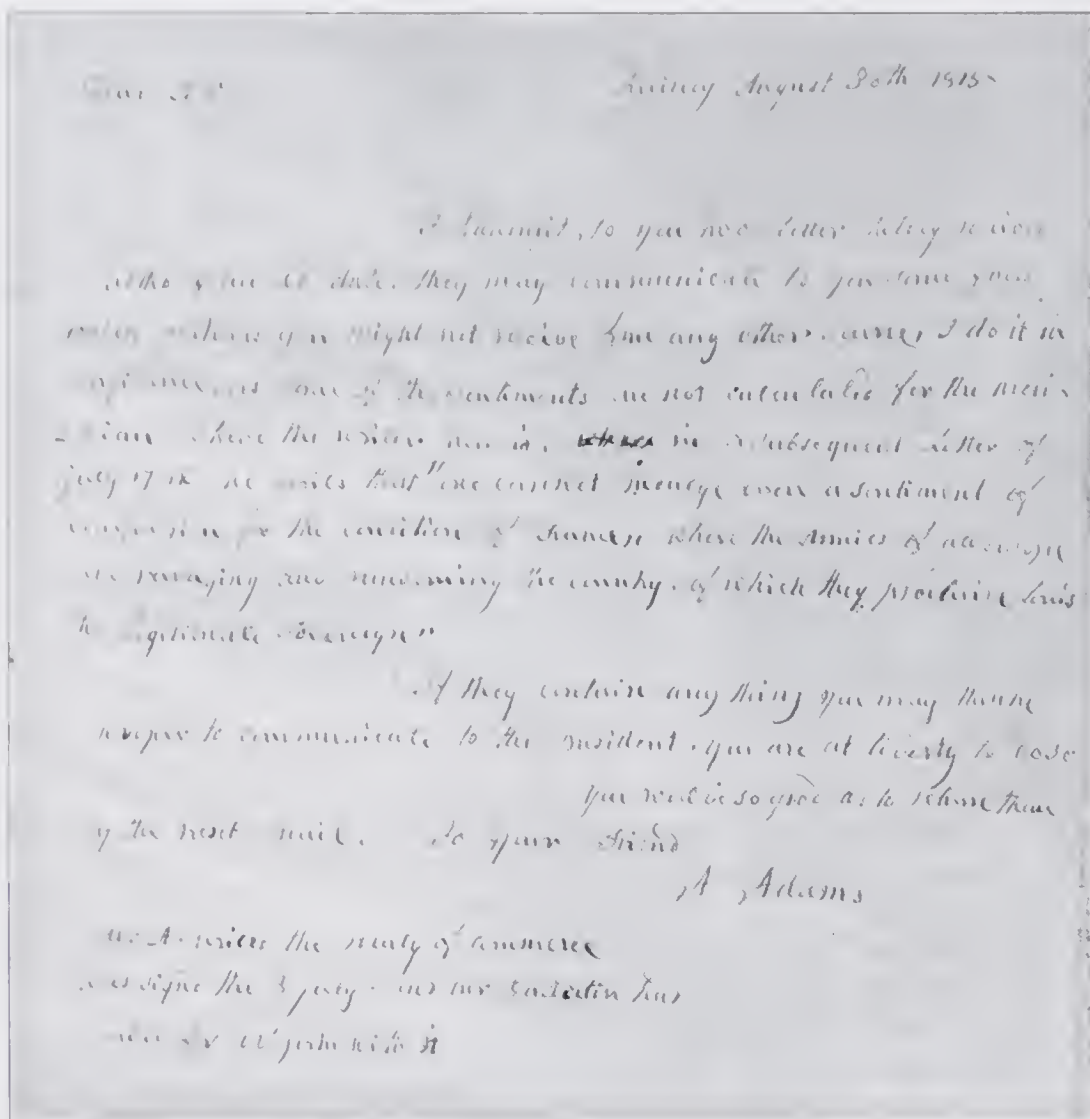 Dear Sir
Quincy August 30th 1815
I transmit, to you two Letter
date. they may communicate to you some
which you might not receive from any other I do it in
some of the sentiments are not calculated for the meri-
dian where the writer now is. in a subsequent Letter of
july 17th he writes that "one cannot indulge even a sentiment of
compassion for the condition of France where the Armies of all
are ravaging and consuming the country, of which they proclaim Louis
the legitimate Sovereign"
If they contain any thing you may think
proper to communicate to the President, you are at liberty to do so
you will be so good as to return them
by the next mail. to your Friend
A Adams
mr A. writes the treaty of commerce
was signed the 3 july. and mr Gallatin has
with it